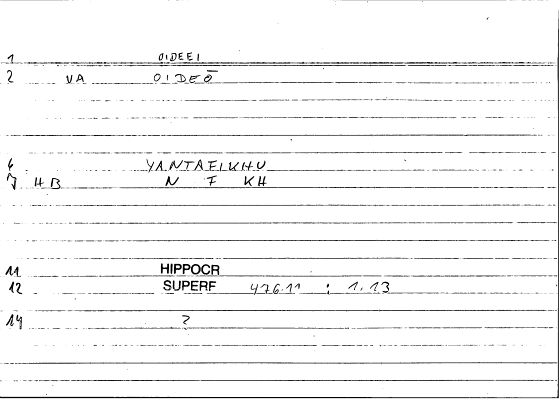 1 OIDEEI
2 VA OIDEŌ
6 YANTAFIKHU
7 HB N F KH
11 HIPPOCR
12 SUPERF 476.11 : 1.13
14 ?